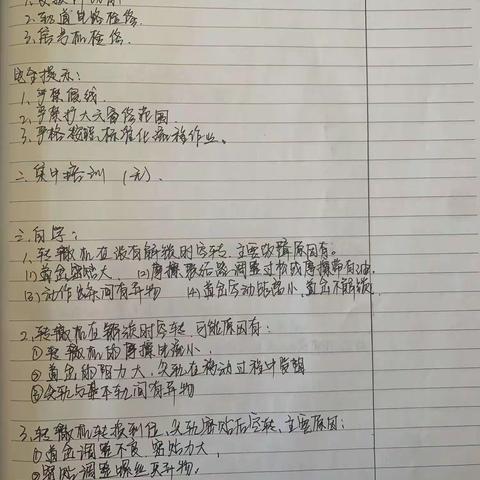 2.轨道电路检修.
3.信号机检修.
安全提示:
1.严禁侵线.
2.严禁扩大天窗修范围.
3.严格按照标准化流程作业。
二.集中培训 (无).
三.自学:
1.转辙机在没有解锁时空转,主要故障原因有。
(1)道岔密贴大 (2)摩擦联结器调整过松或摩擦带有油.
(3)动作齿条间有异物 (4)道岔启动缺油小,道岔不解锁
2.转辙机在解锁时空转,可能原因有:
①转辙机的摩擦电流小.
②道岔的阻力大,尖轨在移动过程中受阻
③尖轨与基本轨间有异物
3.转辙机转换到位,尖轨密贴后空转,主要原因:
①道岔调整不良,密贴力大,
②密贴调整螺丝 有异物,